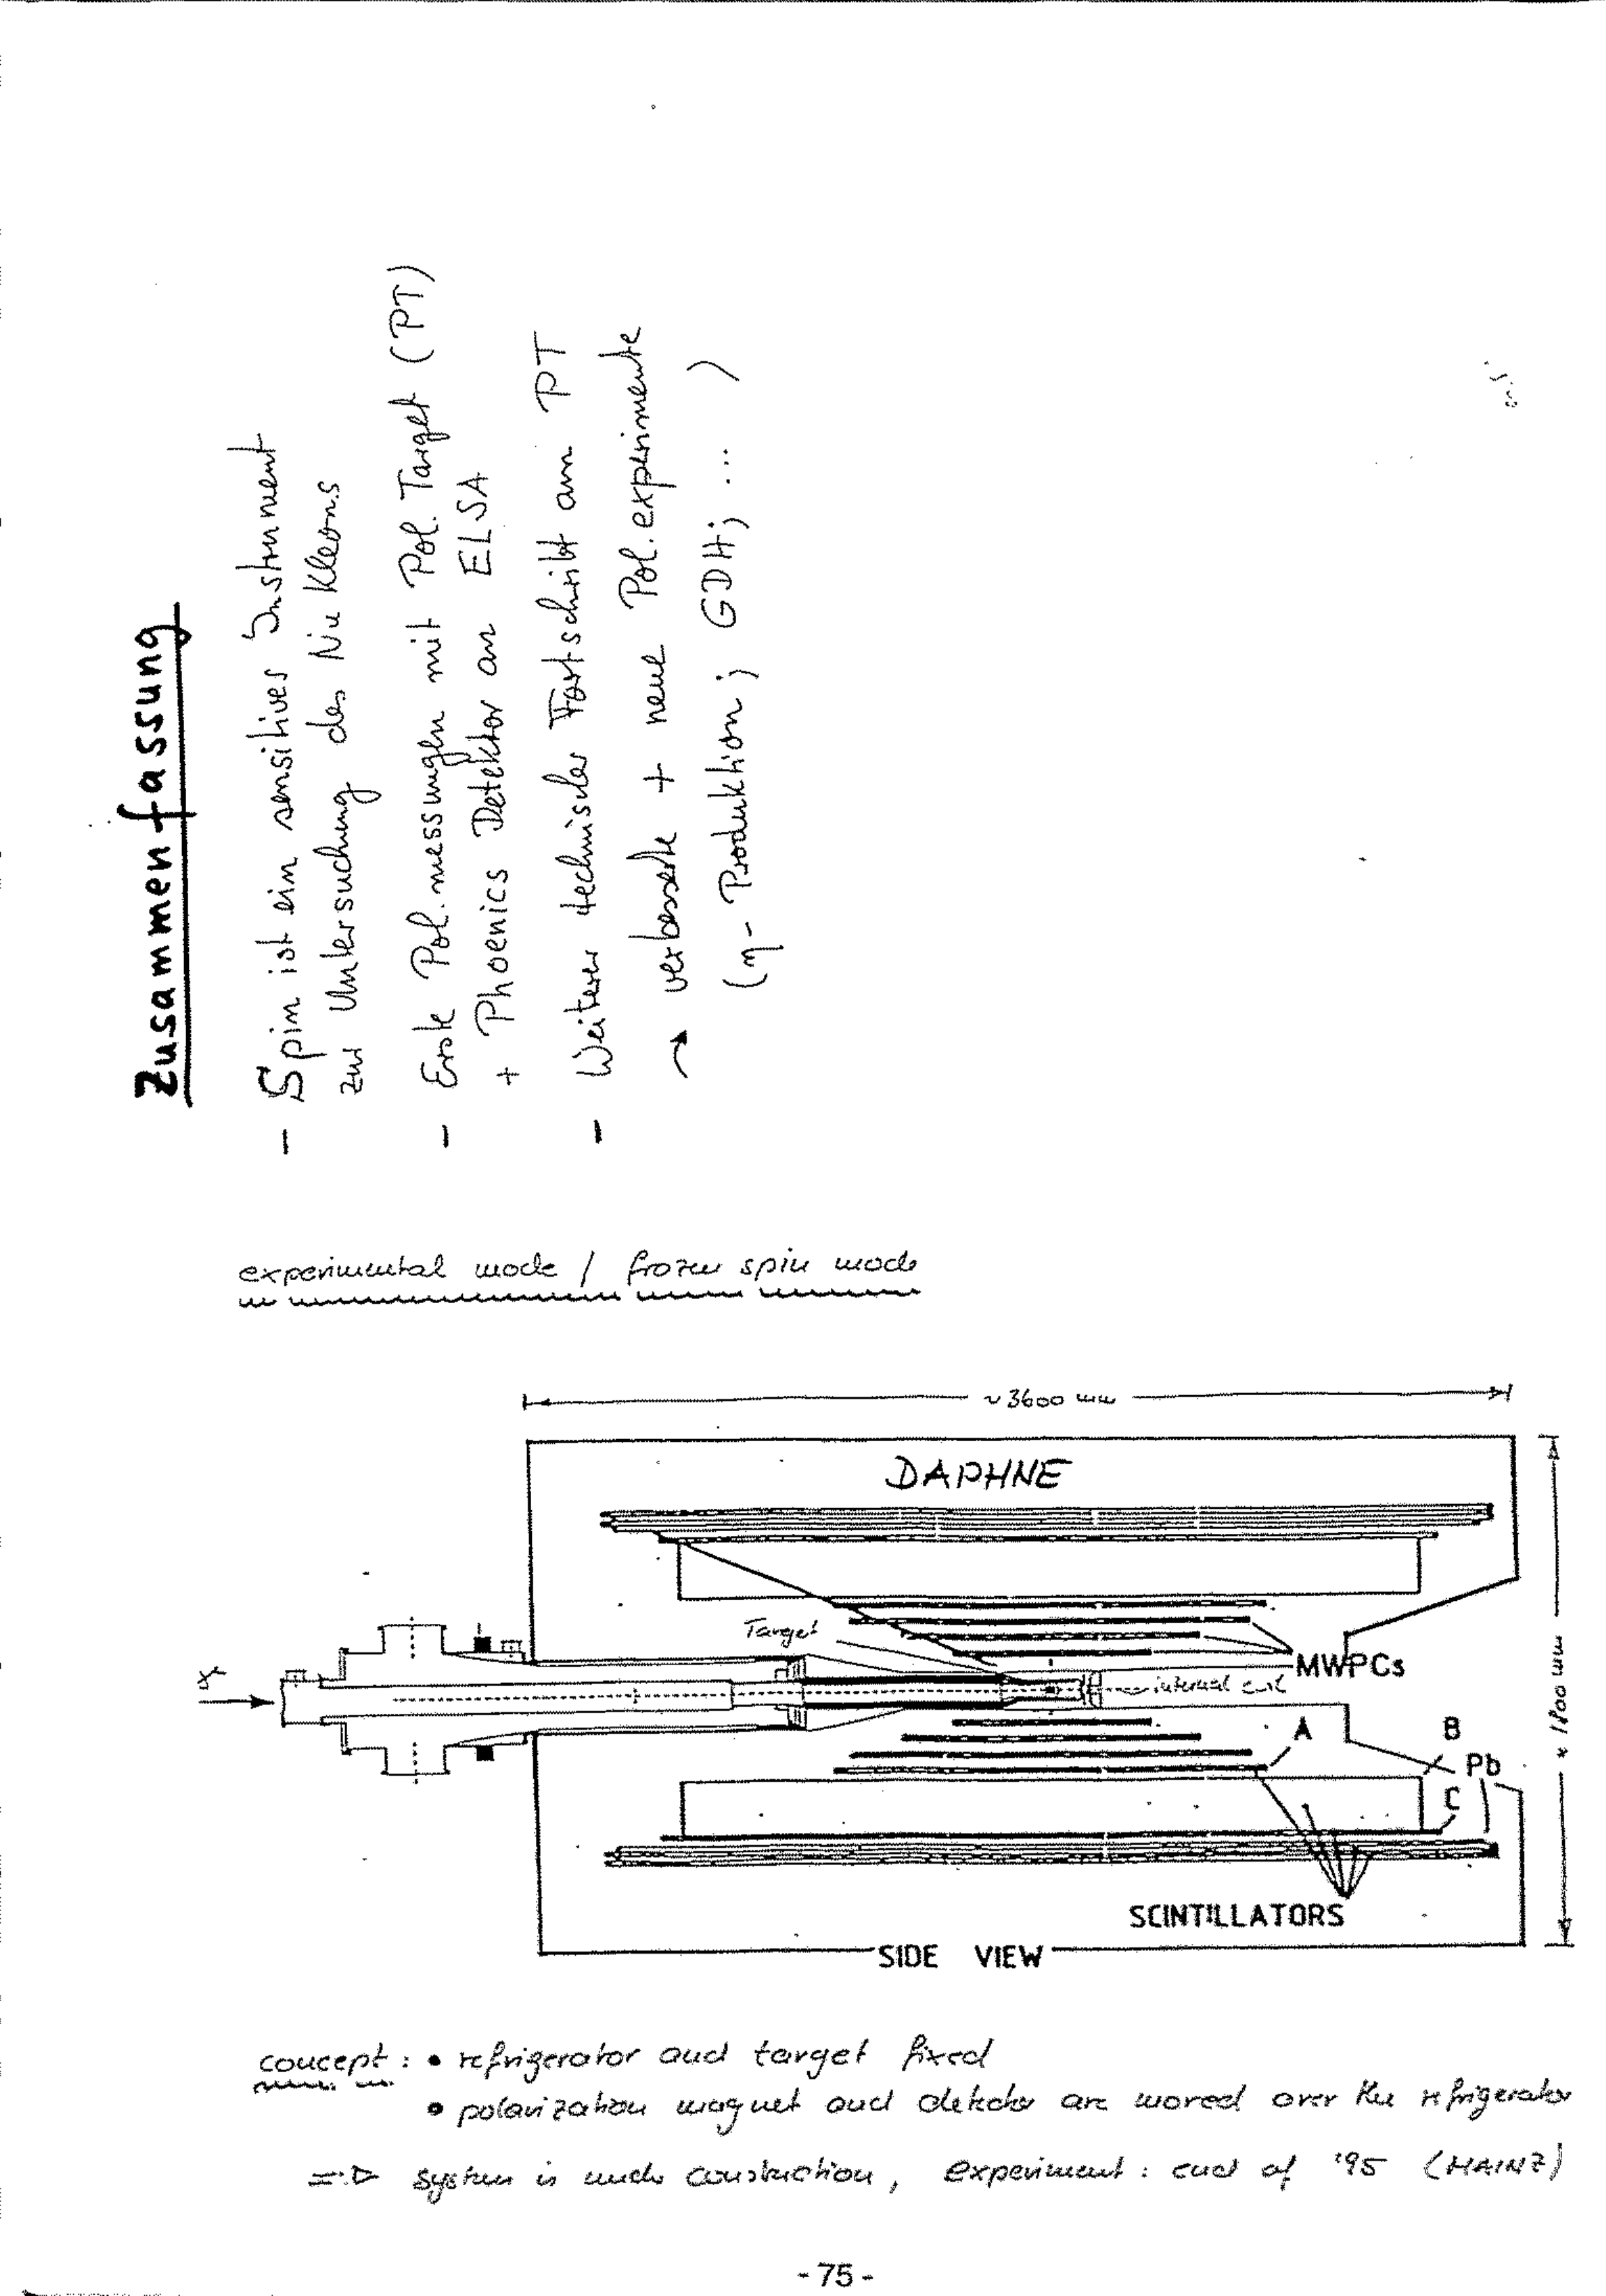 Zusammenfassung
- Spin ist ein sensitives Instrument
zur Untersuchung des Nukleons
- Erste Pol.messungen mit Pol. Target (PT)
+ Phoenics Detektor an ELSA
- Weiterer technischer Fortschritt am PT
→ verbesserte + neue Pol.experimente
(η - Produktion; GDH; ... )
experimental mode / frozen spin mode
~ 3600 mm
DAPHNE
Target
MWPCs
internal coil
A
B
Pb
C
SCINTILLATORS
SIDE VIEW
concept: • refrigerator and target fixed
• polarization magnet and detector are moved over the refrigerator
=> system is under construction, experiment: end of '95 (MAINZ)
- 75 -